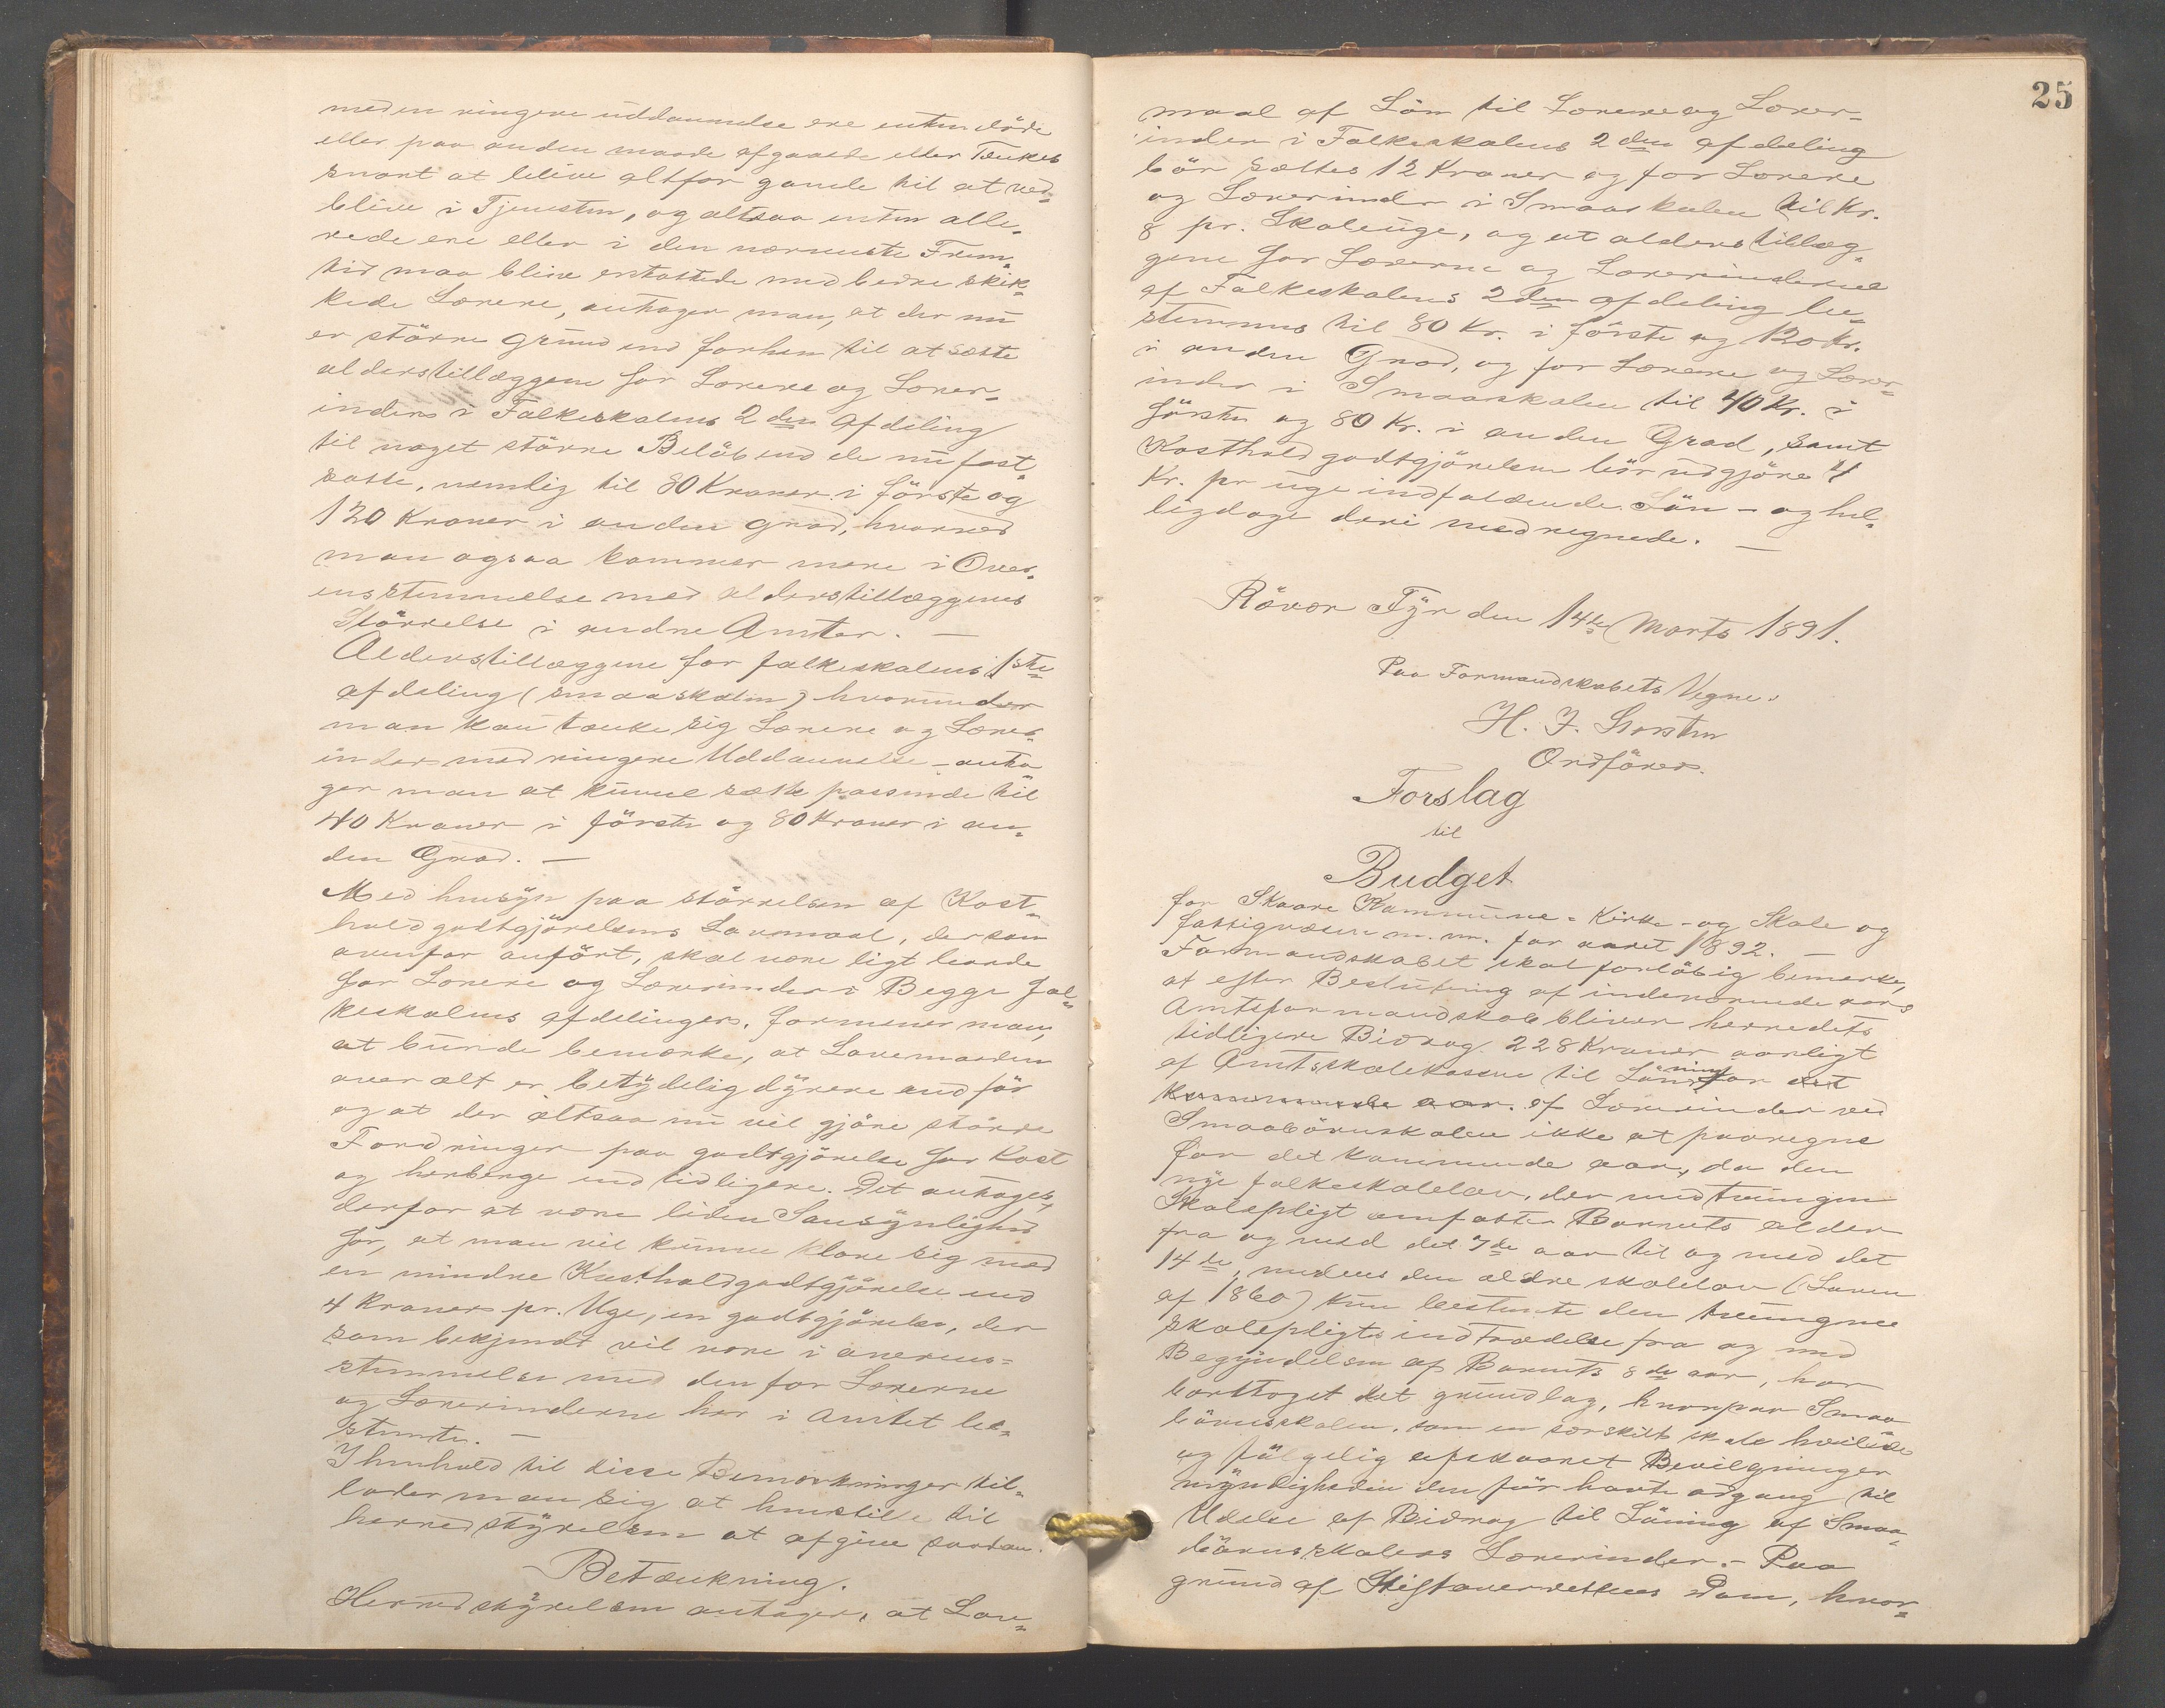 meden ringere uddannelse ere enten døde
eller paa anden maade afgaaede eller Tænkes
snart at blive altfor gamle til at ved-
blive i Tjenesten, og altsaa enten alle-
rede ere eller i den nærmeste Frem-
tid maa blive erstattede med bedre skik-
kede Lærere, antager man, at der nu
er större grund end forhen til at sætte
alderstillæggene for Lærere og Lærer-
inder i Folkeskolens 2den afdeling
til noget större Beløb end de nu fast-
satte, nemlig til 80 Kroner i förste og
120 Kroner i anden grad, hvorved
man ogsaa kommer mere i Over-
ensstemmelse med alderstillæggenes
Størrelse i andre Amter. —
Alderstillæggene for folkeskolens 1ste
afdeling (smaaskolen) hvorunder
man kan tænke sig Lærere og Lærer-
inder med ringere Uddannelse – anta-
ger man at kunne sætte passende til
40 Kroner i förste og 80 Kroner i an-
den Grad. —
Med hensyn paa störrelsen af Kost-
holdgodtgjörelsens Lavmaal, der som
ovenfor anfört, skal være ligt baade
for Lærere og Lærerinder i Begge fol-
keskolens afdelinger, formener man,
at burde bemærke, at Levemaaden
over alt er betydelig dyrere end för
og at der altsaa nu vil gjöre större
Fordringer paa godtgjörelse for Kost
og herberge end tidligere. Det antages,
derfor at være liden Sansynlighed
for, at man vil kunne klare sig med
en mindre Kostholdgodtgjörelse end
4 Kroner pr. Uge, en godtgjörelse, der
som bekjendt vil være i overens-
stemmelse med den for Lærerne
og Lærerinderne her i Amtet be-
stemte. —
I henhold til disse Bemærkninger til-
lader man sig at henstille til
herredstyrelsen at afgive saadan
Betænkning.
Herredstyrelsen antager, at Lav-
25
maal af Lön til Lærere og Lærer-
inder i Folkeskolens 2den afdeling
bör sættes 12 Kroner og for Lærere
og Lærerinder i Smaaskolen til Kr.
8 pr. Skoleuge, og at alderstillæg-
gene for Lærerne og Lærerinderne
af Folkeskolens 2den afdeling be-
stemmes til 80 Kr. i förste og 120 Kr.
i anden Grad, og for Lærere og Lærer-
inder i Smaaskolen til 40 Kr. i
förste og 80 Kr. i anden Grad, samt
Kostholdgodtgjörelsen bör udgjöre 4
Kr. pr uge indfaldende Sön- og hel-
ligdage deri medregnede. —
Rövær Fyr den 14de Marts 1891.
Paa Formandskabets Vegne.
H. J.
Ordförer.
Forslag
til
Budget
for Skaare Kommune - Kirke- og Skole og
fattigvæsen m. m. for aaret 1892. —
Formandskabet skal forlöbig bemærke,
at efter Beslutning af indeværende aars
Amtsformandskab bliver herredets
tidligere Bidrag 228 Kroner aarligt
af Amtsskolekassen til Lönning for det
kommende aar. af Lærerinder ved
Smaabörnskolen ikke at paaregne
for det kommende aar, da den
nye folkeskolelov, der med tvungen
Skolepligt omfatter Barnets alder
fra og med det 7de aar til og med det
14de, medens den ældre skolelov (Loven
af 1860) kun bestemte den tvungne
skolepligts indtrædelse fra og med
Begyndelsen af Barnets 8de aar, har
borttaget det grundlag, hvorpaa Smaa
börnsskolen, som en særskilt skole hvilede
og fölgelig afskaaret Bevilgnings
myndigheden den för havte adgang til
Udelse af Bidrag til Löning af Smaa-
börnsskolens Lærerinder. – Paa
grund af Stiftoverrettens Dom, hvor-